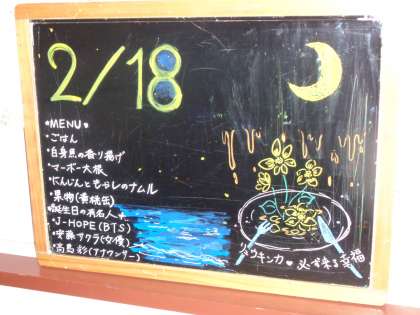 2/18
*MENU♥
・ごはん
・白身魚の香り揚げ
・マーボー大根
・にんじんともやしのナムル
・果物(黄桃缶)
誕生日の有名人
・J-HOPE(BTS)
・安藤サクラ(女優)
・高島彩(アナウンサー)
フクジュソウ
必ず来る幸福